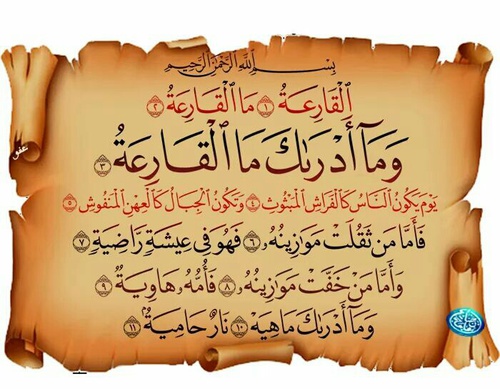 بِسْمِ ٱللَّهِ ٱلرَّحْمَٰنِ ٱلرَّحِيمِ
ٱلْقَارِعَةُ ۝١ مَا ٱلْقَارِعَةُ ۝٢
وَمَآ أَدْرَىٰكَ مَا ٱلْقَارِعَةُ ۝٣
يَوْمَ يَكُونُ ٱلنَّاسُ كَٱلْفَرَاشِ ٱلْمَبْثُوثِ ۝٤ وَتَكُونُ ٱلْجِبَالُ كَٱلْعِهْنِ ٱلْمَنفُوشِ ۝٥
فَأَمَّا مَن ثَقُلَتْ مَوَٰزِينُهُۥ ۝٦ فَهُوَ فِى عِيشَةٍ رَّاضِيَةٍ ۝٧
وَأَمَّا مَنْ خَفَّتْ مَوَٰزِينُهُۥ ۝٨ فَأُمُّهُۥ هَاوِيَةٌ ۝٩
وَمَآ أَدْرَىٰكَ مَا هِيَهْ ۝١٠ نَارٌ حَامِيَةٌۢ ۝١١